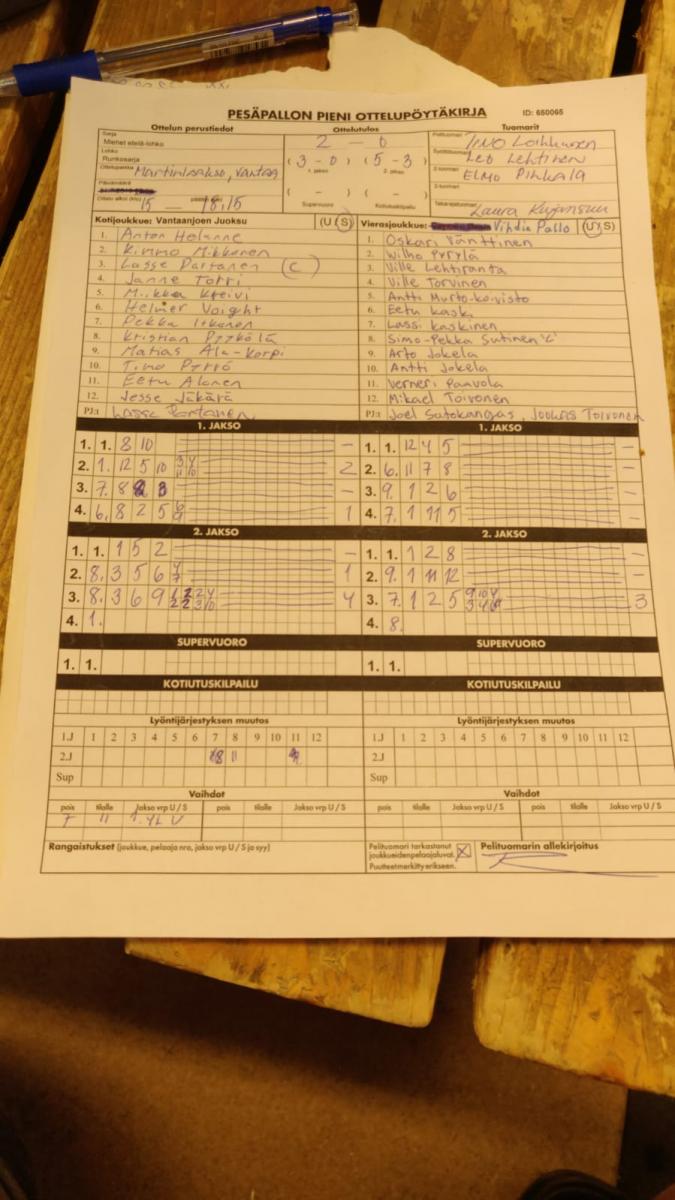 PESÄPALLON PIENI OTTELUPÖYTÄKIRJA ID: 650065
Ottelun perustiedot Ottelutulos Tuomarit
Sarja
Miehet etelä-lohko 2 – 0 Pelituomari
Lohko
Runkosarja (3 – 0) (5 – 3) Leo Lehtinen
Ottelupaikka Martinlaakso, Vantaa 1. jakso 2. jakso 2-tuomari ELMO Pihkala
Päivämäärä ( – ) ( – ) 3-tuomari
Ottelu alkoi (klo) 15 — 18.15 Supervuoro Kotiutuskilpailu Takarajatuomari Laura
Kotijoukkue: Vantaanjoen Juoksu (U / S) Vierasjoukkue: Vihdin Pallo (U / S)
1. Anton Helanne 1. Oskari Vänttinen
2. Kimmo Mikkonen 2. Wilho Pyrylä
3. Lasse Partanen (C) 3. Ville Lehtiranta
4. Janne Torri 4. Ville Torvinen
5. Miikka Kreivi 5. Antti Murto-koivisto
6. Helmer Voight 6. Eetu Kask
7. Pekka Itkonen 7. Lassi Kaskinen
8. Kristian Pyykölä 8. Simo-Pekka Sutinen 'C'
9. Matias Ala-Korpi 9. Arto Jokela
10. Timo Pyrrö 10. Antti Jokela
11. Eetu Alanen 11. Verneri Paavola
12. Jesse Jäkärä 12. Mikael Toivonen
PJ:t Lasse Partanen PJ:t Joel Satokangas, Joonas Toivonen
1. JAKSO 1. JAKSO
1. 1. 8 10 – 1. 1. 12 4 5 –
2. 1. 12 5 10 3/11 4/10 2 2. 6. 11 7 8 –
3. 7. 8 – 3. 9. 1 2 6 –
4. 6. 8 2 5 6/9 1 4. 7. 1 11 5 –
2. JAKSO 2. JAKSO
1. 1. 1 5 2 – 1. 1. 1 2 8 –
2. 8. 3 5 6 4/7 1 2. 9. 1 11 12 –
3. 8. 3 6 9 4 3. 7. 1 2 5 3
4. 1. 4. 8.
SUPERVUORO SUPERVUORO
1. 1. 1. 1.
KOTIUTUSKILPAILU KOTIUTUSKILPAILU
Lyöntijärjestyksen muutos Lyöntijärjestyksen muutos
1.J 1 2 3 4 5 6 7 8 9 10 11 12 1.J 1 2 3 4 5 6 7 8 9 10 11 12
2.J 8 11 2.J
Sup Sup
Vaihdot Vaihdot
pois tilalle Jakso vrp U / S pois Jakso vrp U / S pois tilalle Jakso vrp U / S pois tilalle Jakso vrp U / S
7 11 1. YL U
Rangaistukset (joukkue, pelaaja nro, jakso vrp U / S ja syy) Pelituomari tarkastanut Pelituomarin allekirjoitus
joukkueiden pelaajaluvat.
Puutteet merkitty erikseen.